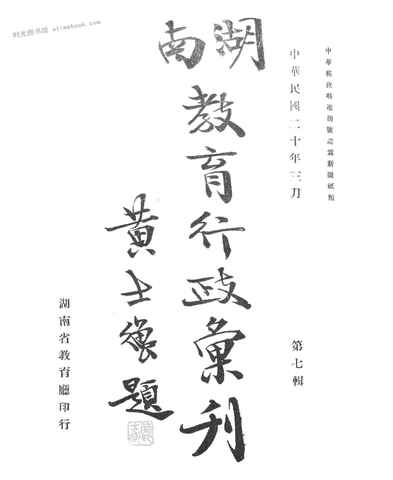 时光图书馆 olimebook.com
中華郵政特准掛號認爲新聞紙類
中華民國二十年三月
第七輯
湖南
教育行政彙刊
黄士衡題
湖南省教育廳印行